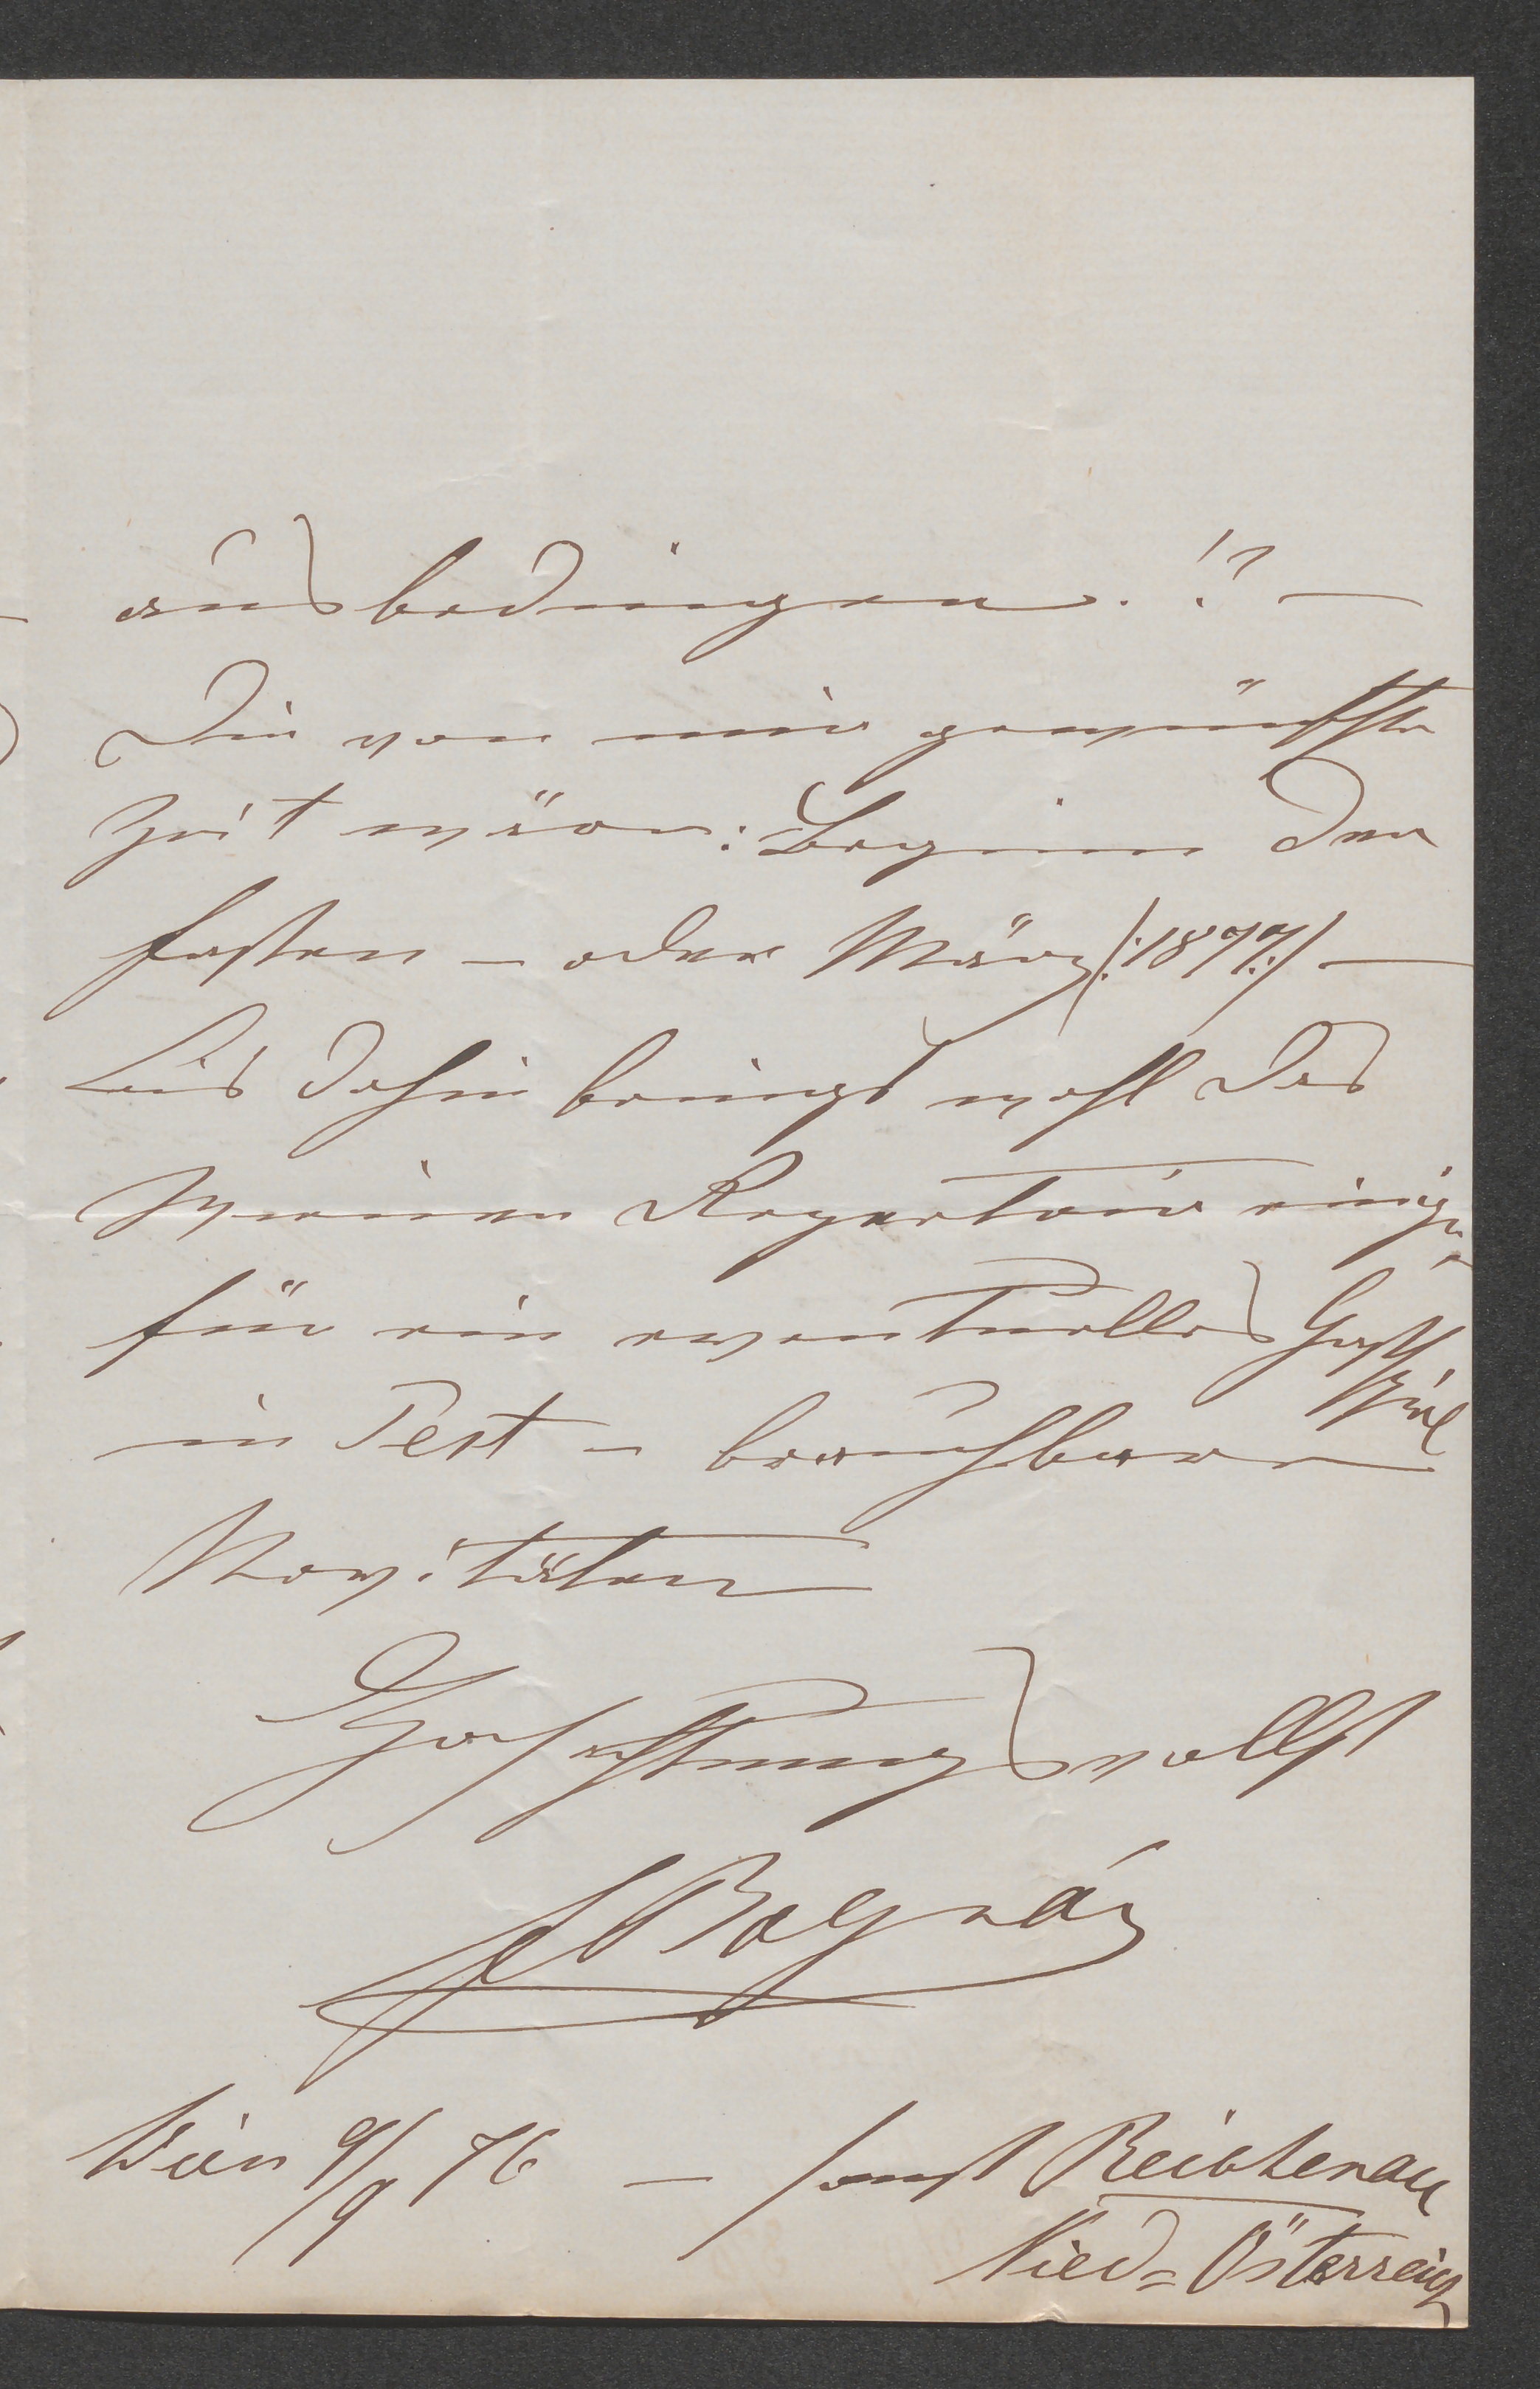 ausbedingen. !? —
Die von mir gewünschte
Zeit wäre: Beginn der
Fasten — oder März /:1877:/ —
Bis dahin bringt wohl das
Wiener Repertoir einige,
für ein eventuelles Gast
spiel
in Pest — brauchbare
Novitäten
Hochachtungsvollst
F Bognár
Wien 9/9 76 — sonst Reichenau
Nied= Österreich